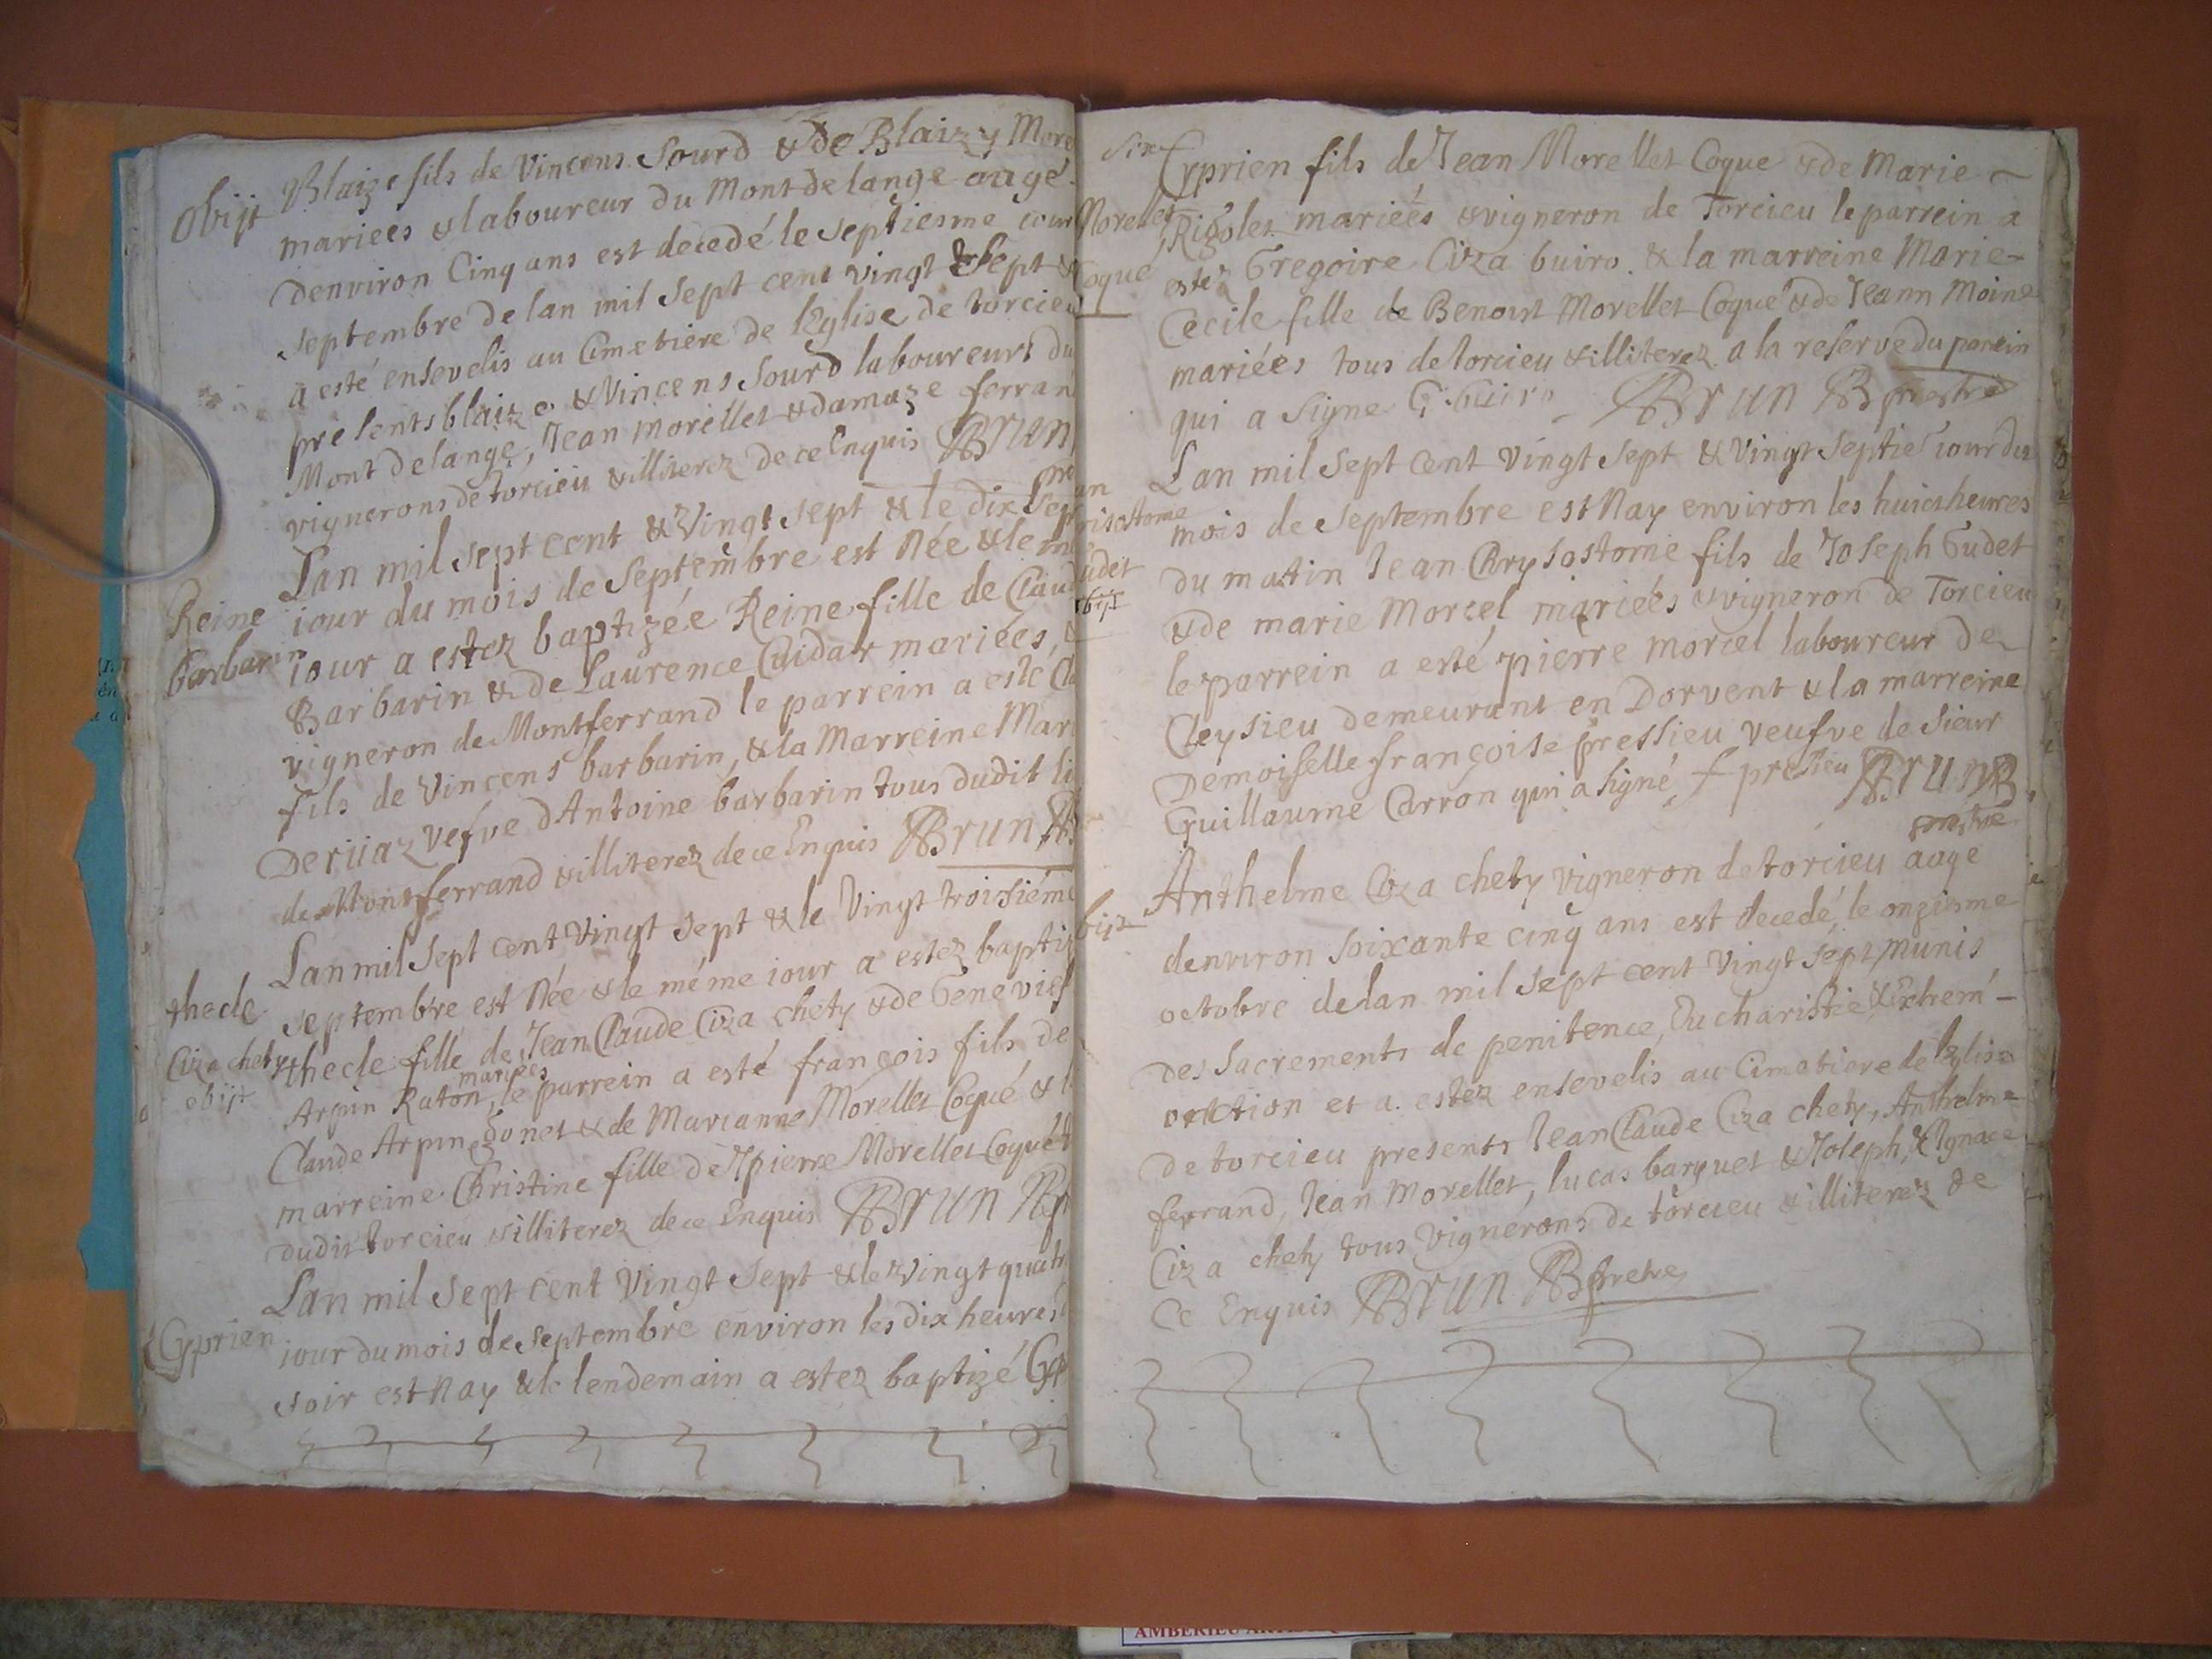 Obijt
Blaize fils de Vincens Sourd & de Blaizy More
mariees & laboureur du Mont de lange aagé
denviron Cinq ans est decedé le septiesme iour
septembre de lan mil sept cent vingt & sept &
a esté ensevelis au Cimetiere de lEglise de torcieu
presents blaize & Vincens Sourd laboureurs du
Mont de lange, Jean morellet & damaze ferran
vignerons de torcieu & illiterez de ce Enquis Brun
Reine
barbarin
Lan mil sept cent & Vingt sept & le dix Sep
iour du mois de Septembre est Née & le m
iour a estez baptizée Reine fille de Clau
Barbarin & de Laurence Cuidat mariées, &
vigneron de Montferrand le parrein a esté Cla
fils de Vincens barbarin, & la Marreine Mar
Deruaz vefve dAntoine barbarin tous dudit li
de Montferrand & illiterez de ce Enquis Brun
thecle
Ciza chety
obijt
Lan mil Sept cent Vingt sept & le Vingt troisiéme
septembre est Née & le méme iour a estez bapti
thecle fille de Jean Claude Ciza chety & de Genevief
mariees
Arpin Raton, le parrein a esté françois fils de
Claude Arpin gonet & de Marianne Morellet Coqué & l
marreine Christine fille de pierre Morellet Coqué
dudit torcieu & illiterez de ce Enquis Brun
Cyprien
Lan mil Sept cent Vingt Sept & le Vingt quatr
iour du mois de Septembre environ les dix heures
soir est Nay & le lendemain a estez baptizé Cyp
Morellet
Coqué
Cyprien fils de Jean Morellet Coque & de Marie
Rigolet mariéés & vigneron de Torcieu le parrein a
estez Gregoire Ciza buiro & la marreine Marie
Cecile fille de Benoist Morellet Coqué & de Jeann Moine
mariées tous de torcieu & illiterez a la reserve du parein
qui a Signe G. buiro Brun prestre
risostome
udet
obijt
Lan mil sept cent vingt sept & Vingt septie iour du
mois de Septembre est Nay environ les huict heures
du matin Jean Chrysostome fils de Joseph Gudet
& de marie Morcel mariéés & vigneron de Torcieu
le parrein a esté pierre morcel laboureur de
Cleysieu demeurant en Dorvent & la marreine
Demoiselle françoise pressieu veufve de Sieur
Guillaume Carron qui a signé f presieu Brun
prestre
bijt
Anthelme Ciza chety vigneron de torcieu aagé
denviron soixante cinq ans est decedé le onziesme
octobre de lan mil sept cent Vingt sept munis
des Sacrements de penitence, Eucharistie & Extrem-
onction et a estez ensevelis au Cimetiere de lEglise
de torcieu presents Jean Claude Ciza chety, Anthelme
ferrand, Jean Morellet, lucas barquet & Joseph, & Ignace
Ciza chety tous Vignerons de torcieu & illiterez de
Ce Enquis Brun pretre
AMBERIEU